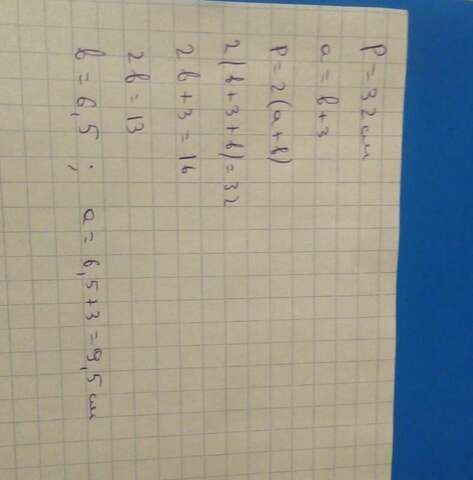 P = 32 см
a = b + 3
P = 2(a + b)
2(b + 3 + b) = 32
2b + 3 = 16
2b = 13
b = 6,5 ; a = 6,5 + 3 = 9,5 см